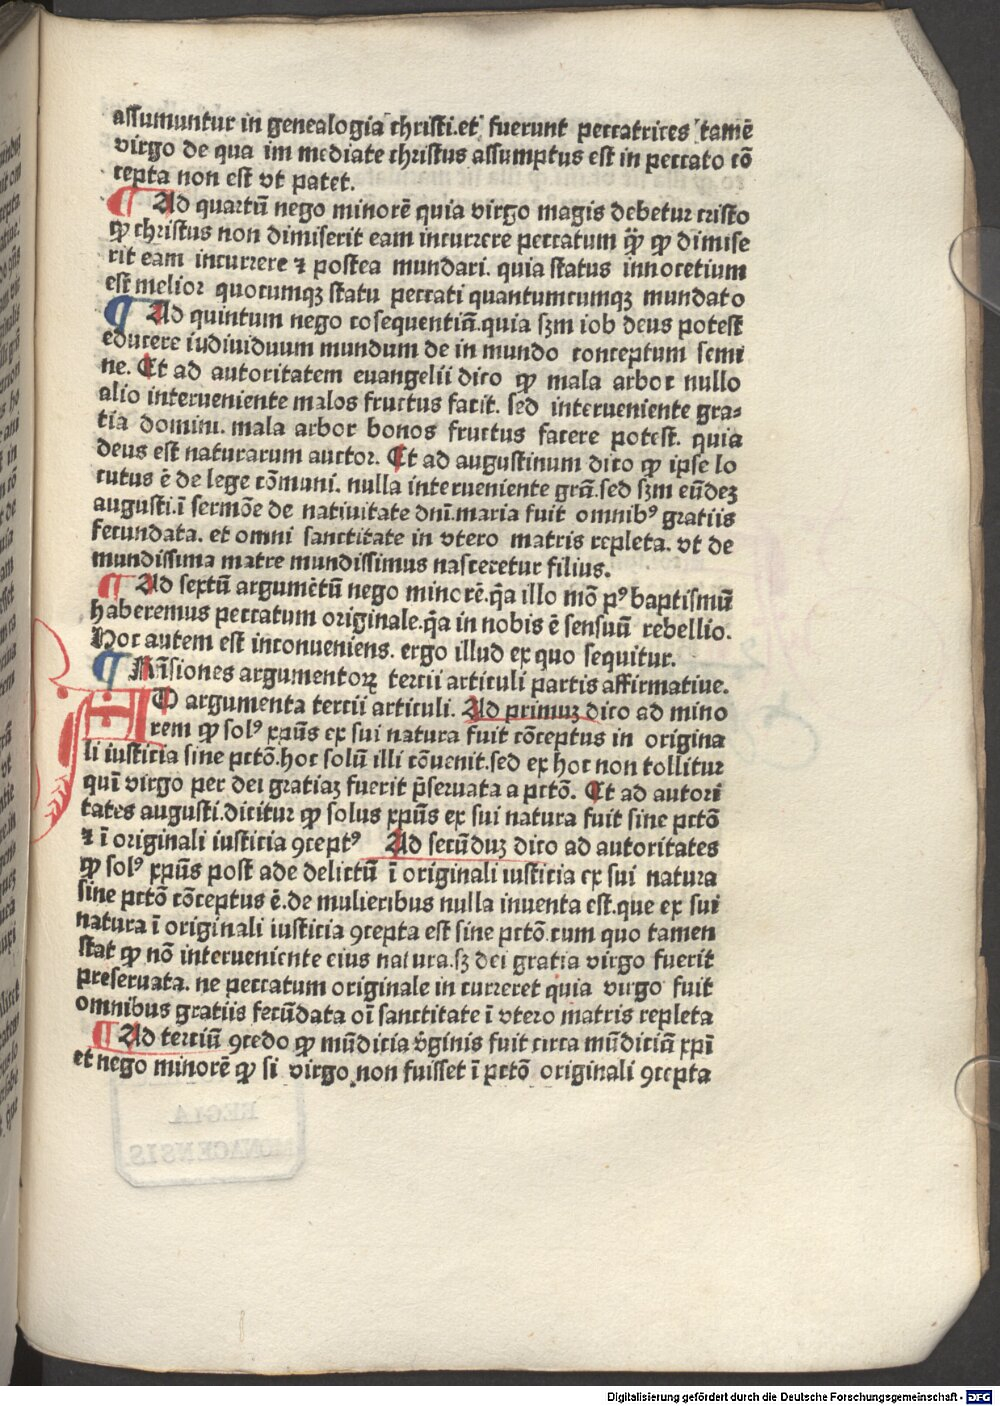 assumuntur in genealogia christi.et fuerunt peccatrices tamē
virgo de qua im mediate christus assumptus est in peccato cō
cepta non est vt patet.
¶ Ad quartū nego minorē quia virgo magis debetur cristo
ꝙ christus non dimiserit eam incurrere peccatum q̄ꝫ ꝙ dimise
rit eam incurrere ⁊ postea mundari. quia status innocētium
est melior quocumqꝫ statu peccati quantumcumqꝫ mundato
¶ Ad quintum nego cōsequentiā.quia sꝫm iob deus potest
educere iudividuum mundum de in mundo conceptum semi
ne. Et ad autoritatem euangelii dico ꝙ mala arbor nullo
alio interueniente malos fructus facit. sed interueniente gra⸗
tia domini. mala arbor bonos fructus facere potest. quia
deus est naturarum auctor. Et ad augustinum dico ꝙ ipse lo
cutus ē de lege cōmuni. nulla interueniente grā.sed sꝫm eūdeꝫ
augusti.ī sermōe de natiuitate dnī.maria fuit omnibꝰ gratiis
fecundata. et omni sanctitate in vtero matris repleta. vt de
mundissima matre mundissimus nasceretur filius.
¶ Ad sextū argumētū nego minorē.q̄a illo mō pꝰ baptismū
haberemus peccatum originale.q̄a in nobis ē sensuū rebellio.
Hoc autem est inconueniens. ergo illud ex quo sequitur.
¶ Rn̄siones argumentoꝝ tercii articuli partis affirmatiue.
AD argumenta tercii articuli. Ad primuꝫ dico ad mino
rem ꝙ solꝰ xpūs ex sui natura fuit cōceptus in origina
li iusticia sine pctō.hoc solū illi cōuenit.sed ex hoc non tollitur
quī virgo per dei gratiaꝫ fuerit p̄seruata a pctō. Et ad autori
tates augusti.dicitur ꝙ solus xpūs ex sui natura fuit sine pctō
⁊ ī originali iusticia ꝯceptꝰ Ad secūduꝫ dico ad autoritates
ꝙ solꝰ xpūs post ade delictū ī originali iusticia ex sui natura
sine pctō cōceptus ē.de mulieribus nulla inuenta est.que ex sui
natura ī originali iusticia ꝯcepta est sine pctō.cum quo tamen
stat ꝙ nō interueniente eius natura.sꝫ dei gratia virgo fuerit
preseruata. ne peccatum originale in curreret quia virgo fuit
omnibus gratiis fecūdata oī sanctitate ī vtero matris repleta
¶ Ad terciū ꝯcedo ꝙ mūdicia v̄ginis fuit circa mūdiciā xpī
et nego minorē ꝙ si virgo non fuisset ī pctō originali ꝯcepta
REGIA
MONACENSIS
Digitalisierung gefördert durch die Deutsche Forschungsgemeinschaft - DFG